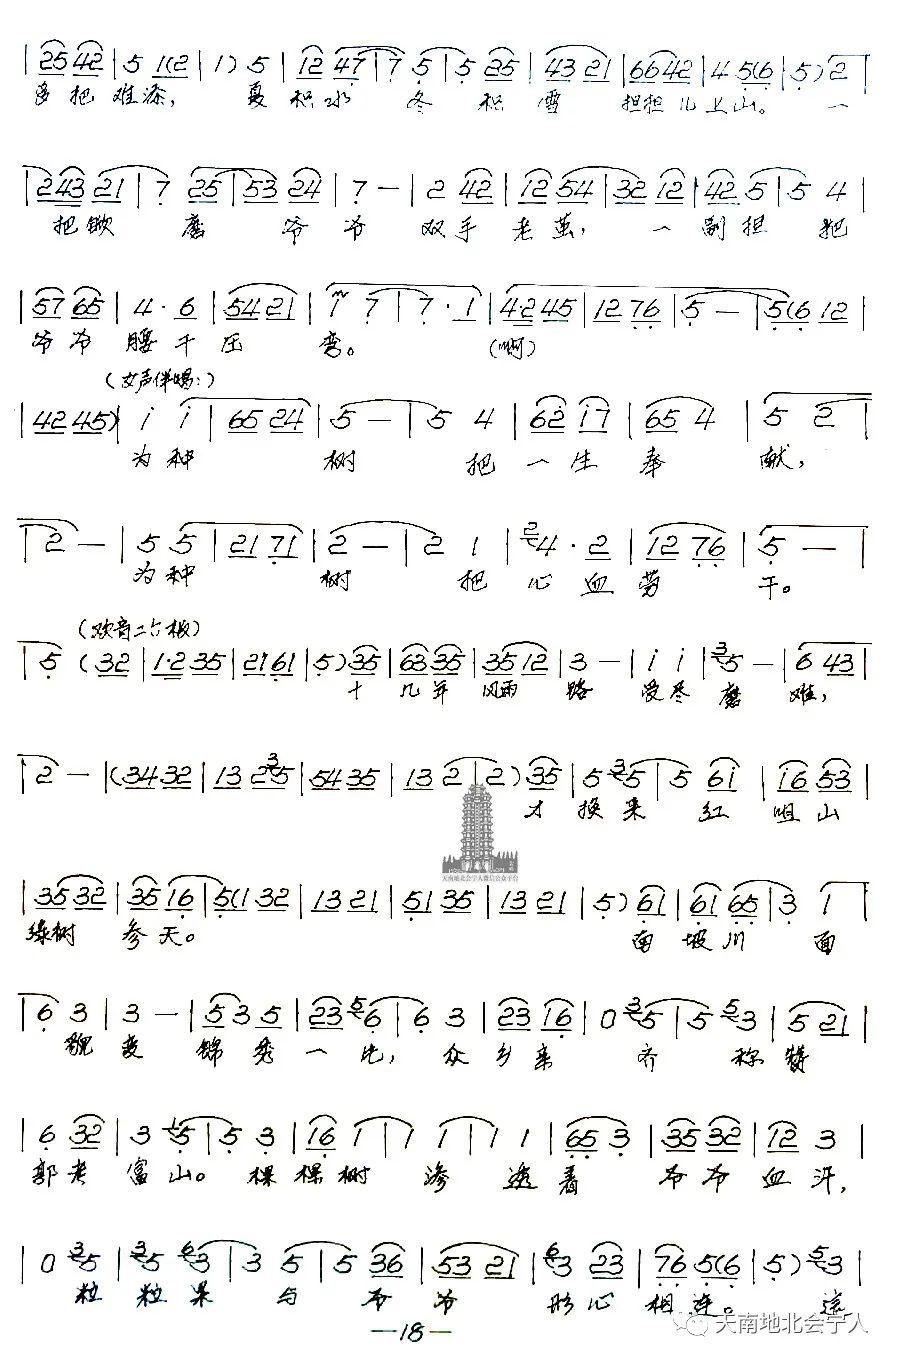 |25 42|5 1(2|1) 5|12 47|7 5|5 25|43 21|66 42|4 5(6|5) 2|
多 把 难添, 夏 积水 冬 积 雪 担担儿上山。 一
|243 21|7 25|53 24|7 —|2 42|12 54|32 12|42 5|5 4|
把锨 磨 爷爷 双手老茧, 一副担 把
|57 65|4·6|54 21|1 7|7·1|4·2 45|12 76|5 —|5(6 12|
爷爷 腰杆压 弯。 (啊)
(女声伴唱:)
|42 45)|i i|65 24|5 —|5 4|62 17|65 4|5 2|
为种 树 把一生奉 献,
|2 —|5 5|21 71|2 —|2 1|2 4·2|12 76|5 —|
为种 树 把 心血劳 干。
(欢音二六板)
|5 (32|1·2 35|21 61|5) 35|63 35|35 12|3 —|i i|3 5 —|6 43|
十几年 风雨 路 受尽磨 难,
|2 —|(34 32|13 2 3 5|54 35|13 2|2) 35|5 3 5|5 6i|i6 53|
才 换来 红 咀山
天南地北会宁人微信公众平台
|35 32|35 16|5(1 32|13 21|51 35|13 21|5) 61|61 65|3 1|
绿树 参天。 南坡川 面
|6 3|3 —|5 3 5|23 5 6|6 3|23 16|0 3 5|5 5 3|5 21|
貌变 锦秀一片, 众乡亲 齐 称赞
|6 32|3 1 5|5 3|16 1|1 1|1 1|65 3|35 32|12 3|
郭老 富山。 棵棵树 渗 透着 爷爷血汗,
|0 3 5|3 5 6 3|3 5|5 36|53 21|6 3 23|76 5(6|5) 5 3|
粒 粒果 与 爷爷 形心相连。 这
—18—
天南地北会宁人